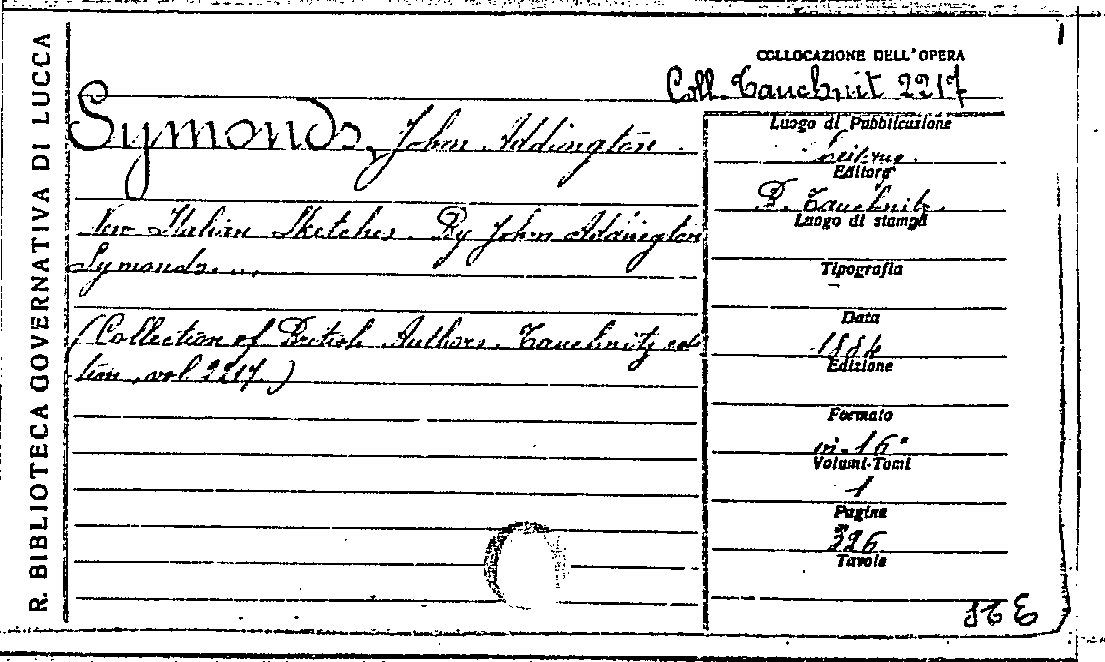 R. BIBLIOTECA GOVERNATIVA DI LUCCA
COLLOCAZIONE DELL'OPERA
Coll. Tauchnit 2217
Symonds, John Addington
New Italian Sketches. By John Addington
Symonds....
(Collection of British Authors. Tauchnitz edi
tion, vol. 2217.)
Luogo di Pubblicazione
Editore
B. Tauchnitz
Luogo di stampa
Tipografia
Data
1884
Edizione
Formato
in-16°
Volumi-Tomi
1
Pagine
326
Tavole